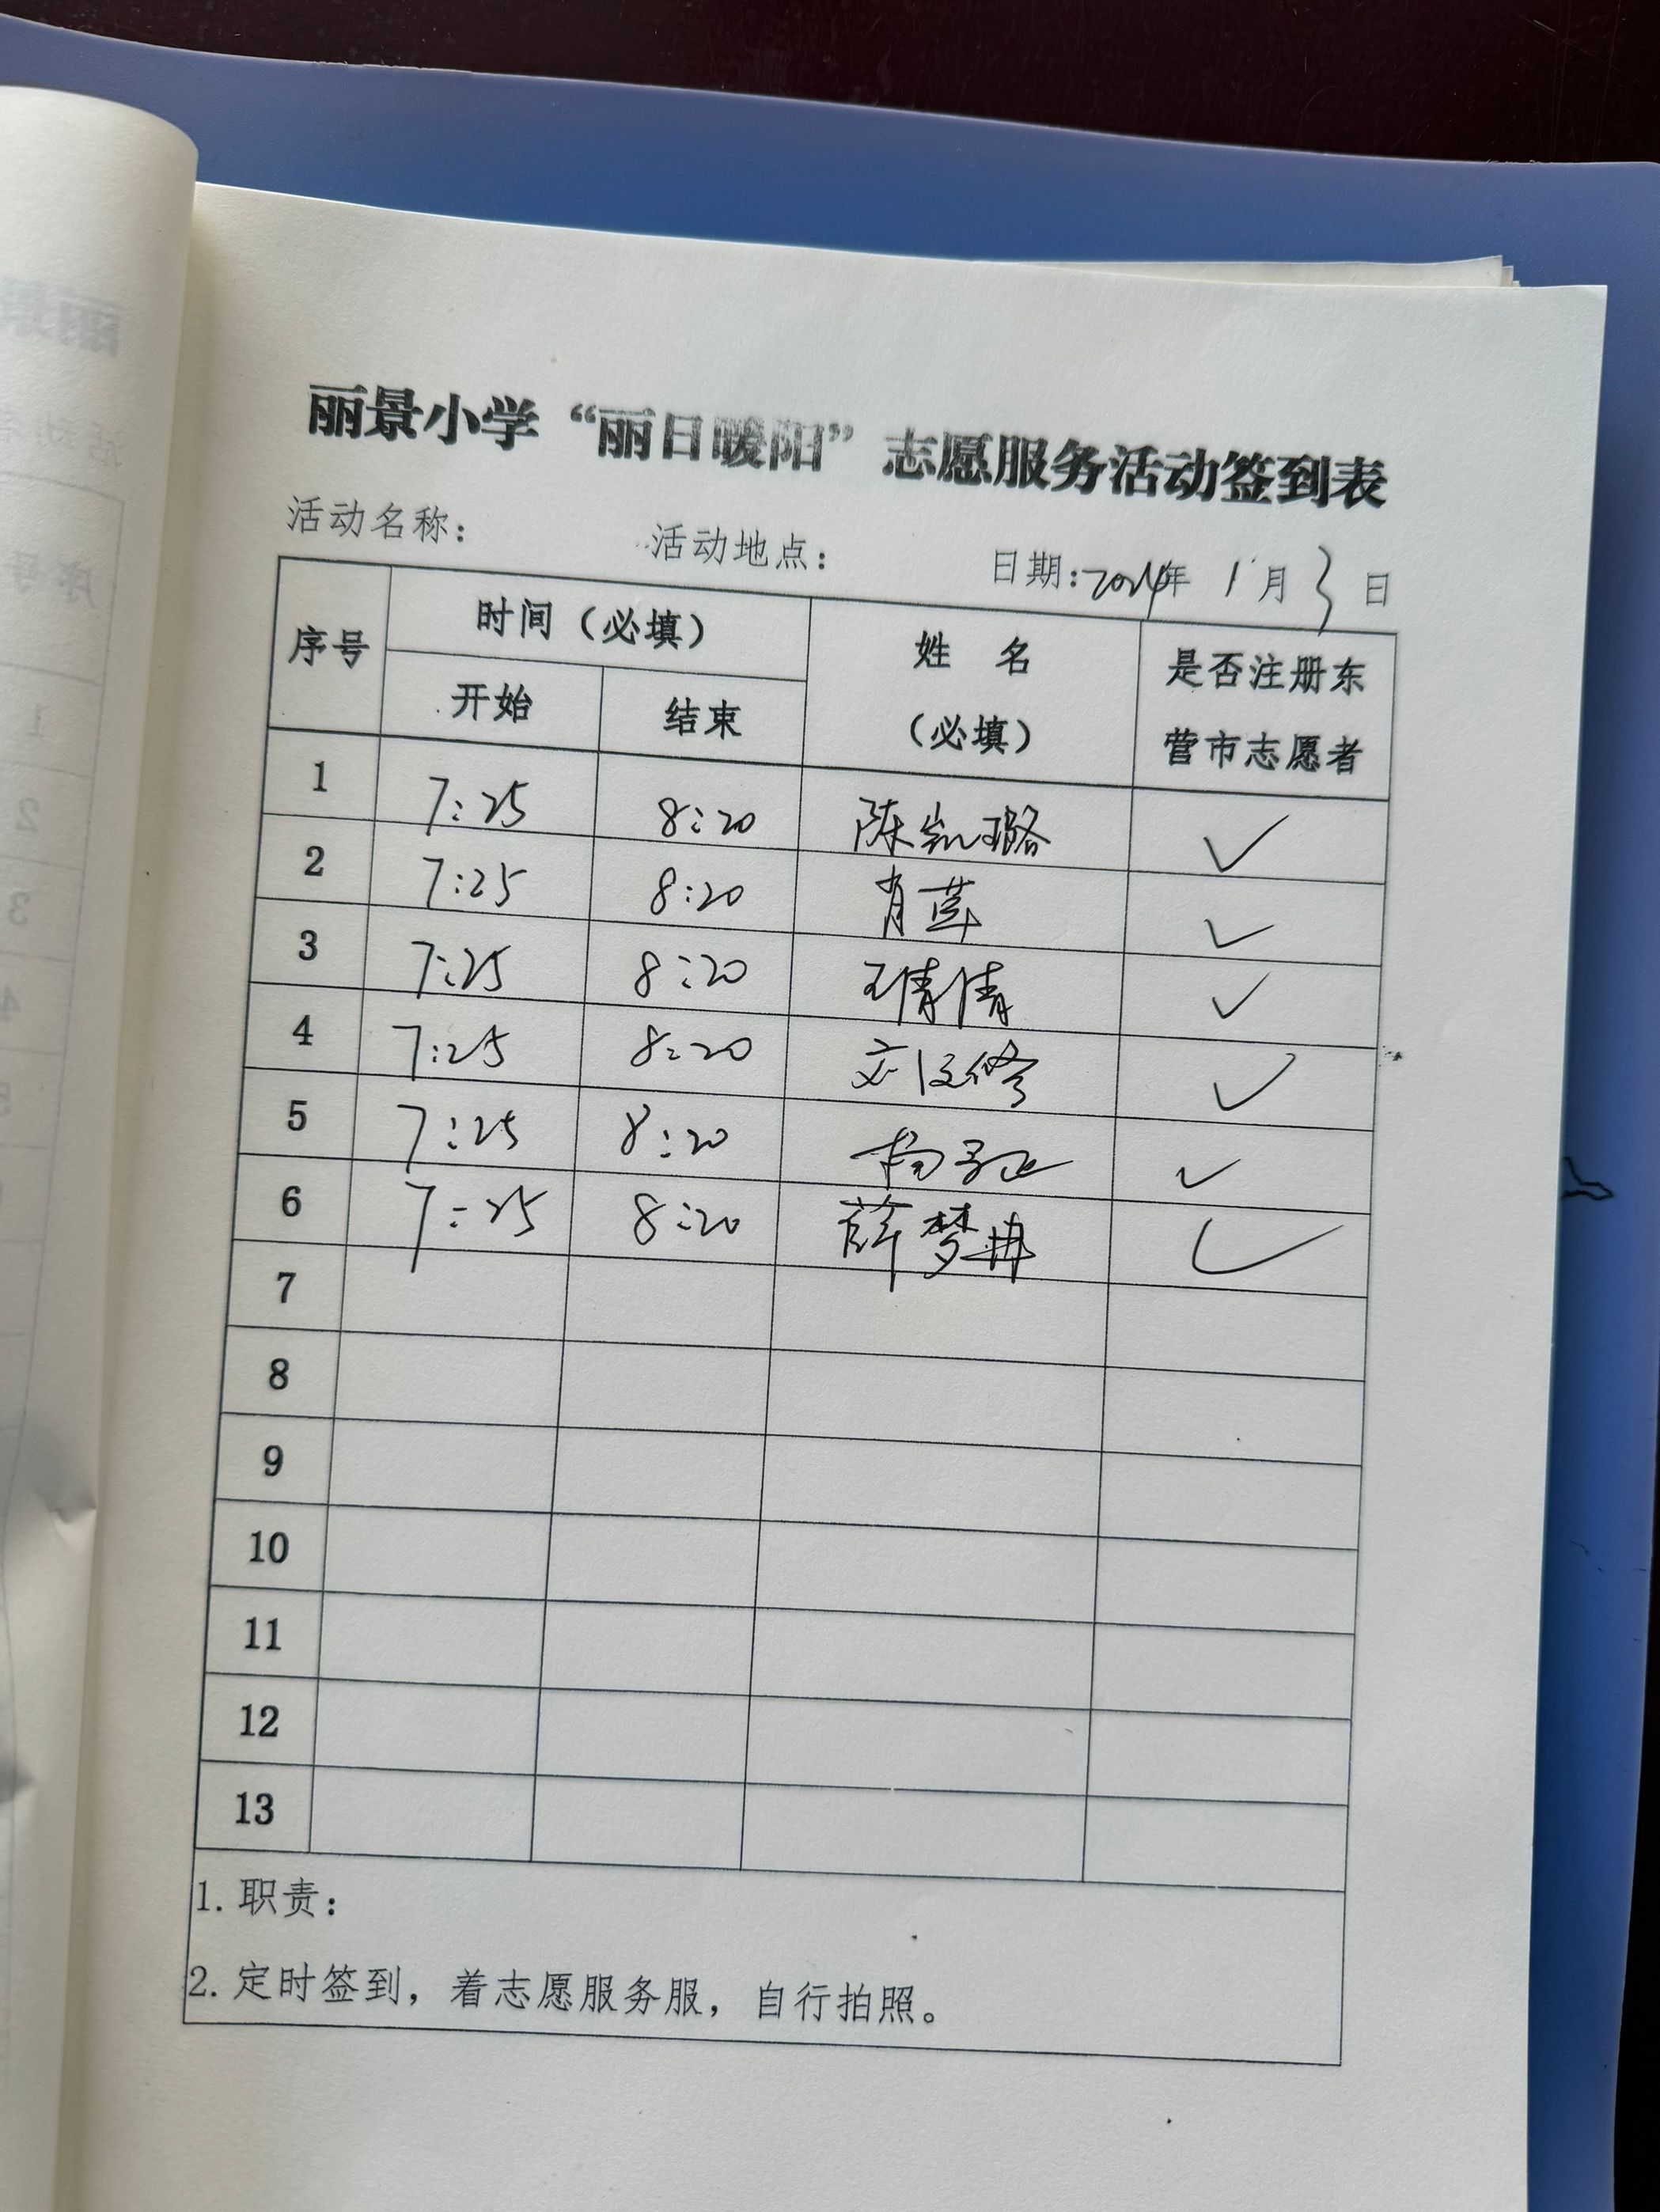 丽景小学“丽日暖阳”志愿服务活动签到表
活动名称： 活动地点： 日期:2024年 1月 3日
序号 时间（必填） 姓 名（必填） 是否注册东营市志愿者
开始 结束
1 7:25 8:20 陈凯璐 ✓
2 7:25 8:20 肖莲 ✓
3 7:25 8:20 王倩倩 ✓
4 7:25 8:20 ✓
5 7:25 8:20 ✓
6 7:25 8:20 薛梦冉 ✓
7
8
9
10
11
12
13
1. 职责：
2. 定时签到，着志愿服务服，自行拍照。